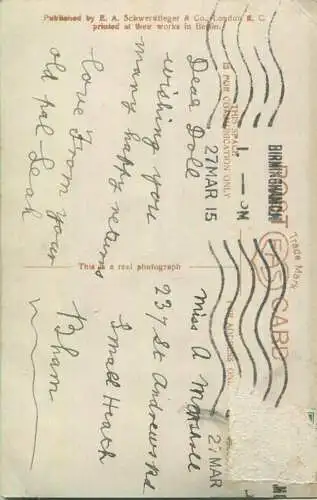 Published by E. A. Schwerdtfeger & Co., London E. C.
printed at their works in Berlin.
POST CARD
Trade Mark
EAS
THIS SPACE
IS FOR COMMUNICATION ONLY
FOR ADDRESS ONLY
This is a real photograph
BIRMINGHAM
27 MAR 15
27 MAR
Dear Doll
wishing you
many happy returns
love From your
old pal - Leah
Miss A
237 St Andrews Rd
Small Heath
B'ham